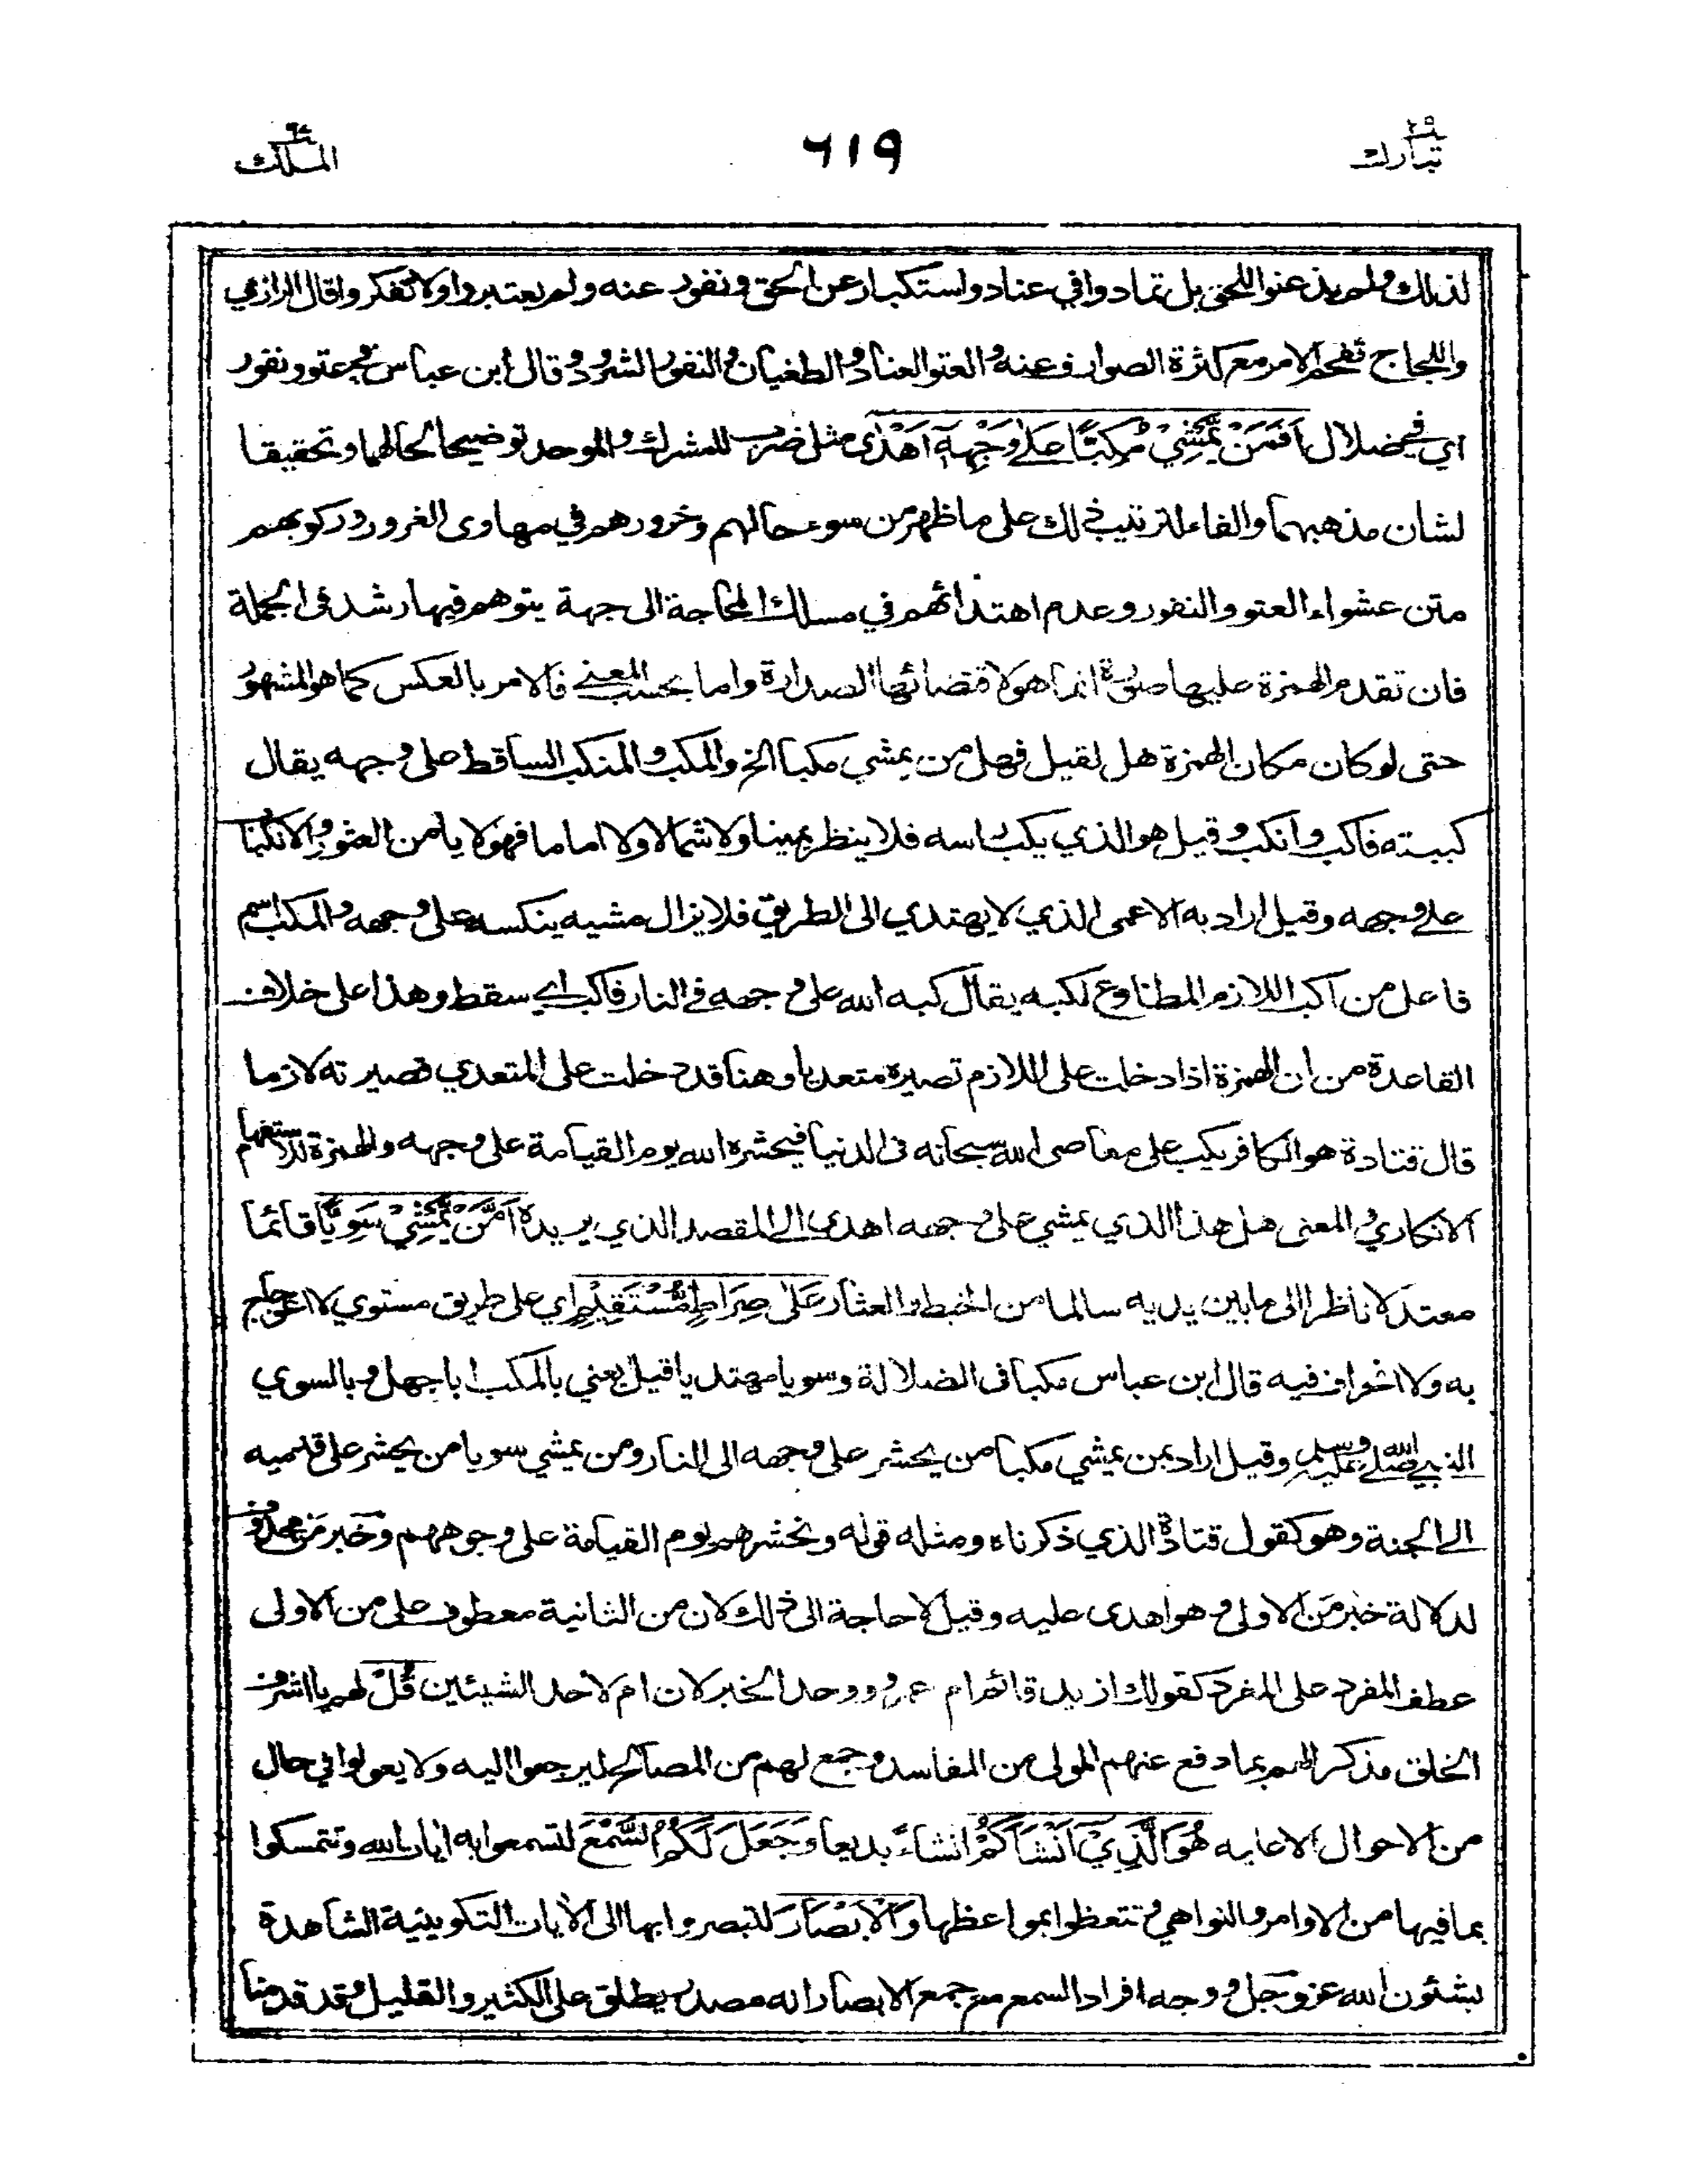 تبارك ٢٩
٦١٩
الملك ٦٧
لذلك ولم يذعنوا للحق بل تمادوا في عناد واستكبار عن الحق ونفور عنه ولم يعتبروا ولا تفكروا قال الرازي
واللجاج تقحم الامر مع كثرة الصوارف عنه والعتو العناد والطغيان والنفور الشرود وقال ابن عباس في عتو ونفور
اي في ضلال اَفَمَنْ يَّمْشِيْ مُكِبًّا عَلٰى وَجْهِهٖٓ اَهْدٰى مثل ضرب للمشرك والموحد توضيحا لحالهما وتحقيقا
لشان مذهبهما والفاء لترتيب ذلك على ما ظهر من سوء حالهم وخرورهم في مهاوى الغرور وركوبهم
متن عشواء العتو والنفور وعدم اهتدائهم في مسالك المحاجة الى جهة يتوهم فيها رشد فى الجملة
فان تقدم الهمزة عليها صورة انما هو لاقتضائها الصدارة واما بحسب المعنى فالامر بالعكس كما هو المشهور
حتى لو كان مكان الهمزة هل لقيل فهل من يمشي مكبا الخ والمكب والمنكب الساقط على وجهه يقال
كببته فاكب وانكب وقيل هو الذي يكب راسه فلا ينظر يمينا ولا شمالا ولا اماما فهو لا يامن العثور والانكباب
على وجهه وقيل اراد به الاعمى الذي لا يهتدي الى الطريق فلا يزال مشيه ينكسه على وجهه والمكب اسم
فاعل من اكب اللازم المطاوع لكبه يقال كبه الله على وجهه في النار فاكب اي سقط وهذا على خلاف
القاعدة من ان الهمزة اذا دخلت على اللازم تصيره متعديا وهنا قد دخلت على المتعدي فصيرته لازما
قال قتادة هو الكافر يكب على معاصى الله سبحانه فى الدنيا فيحشره الله يوم القيامة على وجهه والهمزة للاستفهام
الانكاري والمعنى هل هذا الذي يمشي على وجهه اهدى الى المقصد الذي يريده اَمَّنْ يَّمْشِيْ سَوِيًّا قائما
معتدلا ناظرا الى ما بين يديه سالما من الخبط والعثار عَلٰى صِرَاطٍ مُّسْتَقِيْمٍ اي على طريق مستوي لا اعوجاج
به ولا انحراف فيه قال ابن عباس مكبا فى الضلالة وسويا مهتديا قيل يعني بالمكب ابا جهل وبالسوي
النبي صلى الله عليه وسلم وقيل اراد بمن يمشي مكبا من يحشر على وجهه الى النار ومن يمشي سويا من يحشر على قدميه
الى الجنة وهو كقول قتادة الذي ذكرناه ومثله قوله ونحشرهم يوم القيامة على وجوههم وخبر من محذوف
لدلالة خبر من الاولى وهو اهدى عليه وقيل لا حاجة الى ذلك لان من الثانية معطوف على من الاولى
عطف المفرد على المفرد كقولك ازيد قائم ام عمرو ووحد الخبر لان ام لاحد الشيئين قُلْ لهم يا اشرف
الخلق مذكرا لهم بما دفع عنهم المولى من المفاسد وجمع لهم من المصالح ليرجعوا اليه ولا يعولوا في حال
من الاحوال الا عليه هُوَ الَّذِيْٓ اَنْشَاَكُمْ انشاءً بديعا وَجَعَلَ لَكُمُ السَّمْعَ لتسمعوا به ايات الله وتتمسكوا
بما فيها من الاوامر والنواهي وتتعظوا بمواعظها وَالْاَبْصَارَ لتبصروا بها الى الايات التكوينية الشاهدة
بشئون الله عز وجل ووجه افراد السمع مع جمع الابصار انه مصدر يطلق على الكثير والقليل وقد قدمنا